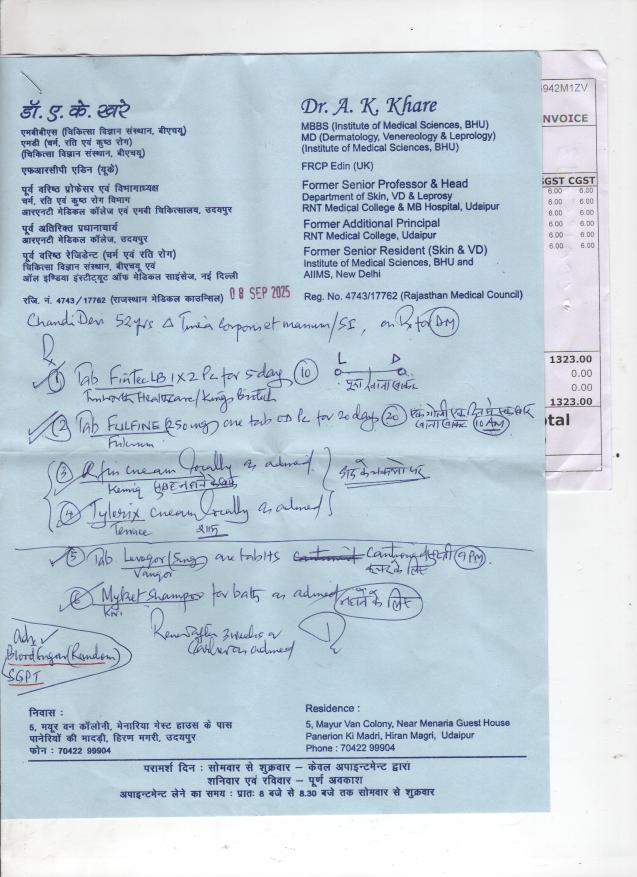 डॉ. ए. के. खरे
एमबीबीएस (चिकित्सा विज्ञान संस्थान, बीएचयू)
एमडी (चर्म, रति एवं कुष्ठ रोग)
(चिकित्सा विज्ञान संस्थान, बीएचयू)
एफआरसीपी एडिन (यूके)
पूर्व वरिष्ठ प्रोफेसर एवं विभागाध्यक्ष
चर्म, रति एवं कुष्ठ रोग विभाग
आरएनटी मेडिकल कॉलेज एवं एमबी चिकित्सालय, उदयपुर
पूर्व अतिरिक्त प्रधानाचार्य
आरएनटी मेडिकल कॉलेज, उदयपुर
पूर्व वरिष्ठ रेजिडेन्ट (चर्म एवं रति रोग)
चिकित्सा विज्ञान संस्थान, बीएचयू एवं
ऑल इण्डिया इंस्टीट्यूट ऑफ मेडिकल साइंसेज, नई दिल्ली
रजि. नं. 4743/17762 (राजस्थान मेडिकल काउन्सिल)
08 SEP 2025
Dr. A. K. Khare
MBBS (Institute of Medical Sciences, BHU)
MD (Dermatology, Venereology & Leprology)
(Institute of Medical Sciences, BHU)
FRCP Edin (UK)
Former Senior Professor & Head
Department of Skin, VD & Leprosy
RNT Medical College & MB Hospital, Udaipur
Former Additional Principal
RNT Medical College, Udaipur
Former Senior Resident (Skin & VD)
Institute of Medical Sciences, BHU and
AIIMS, New Delhi
Reg. No. 4743/17762 (Rajasthan Medical Council)
942M1ZV
NVOICE
SGST CGST
6.00 6.00
6.00 6.00
6.00 6.00
6.00 6.00
6.00 6.00
6.00 6.00
1323.00
0.00
0.00
1323.00
tal
Chandi Devi 52 yrs Δ Tinea corporis et manum/SI, on Rx for DM
Rx
1 Tab Fintec LB 1 X 2 Pc for 5 days 10 L D
2 Tab FULFINE (250mg) one tab OD Pc for 20 days 20 10 AM
3 cream locally as advised
4 Tylorix cream locally as advised
5 Tab (5mg) one tab HS 9 PM
6 Myket Shampoo for bath as advised नहाने के लिए
Review after 3 weeks or
earlier as advised
Adv
Blood Sugar (Random)
SGPT
निवास :
5, मयूर वन कॉलोनी, मेनारिया गेस्ट हाउस के पास
पानेरियों की मादड़ी, हिरण मगरी, उदयपुर
फोन : 70422 99904
Residence :
5, Mayur Van Colony, Near Menaria Guest House
Panerion Ki Madri, Hiran Magri, Udaipur
Phone : 70422 99904
परामर्श दिन : सोमवार से शुक्रवार - केवल अपाइन्टमेन्ट द्वारा
शनिवार एवं रविवार - पूर्ण अवकाश
अपाइन्टमेन्ट लेने का समय : प्रातः 8 बजे से 8.30 बजे तक सोमवार से शुक्रवार